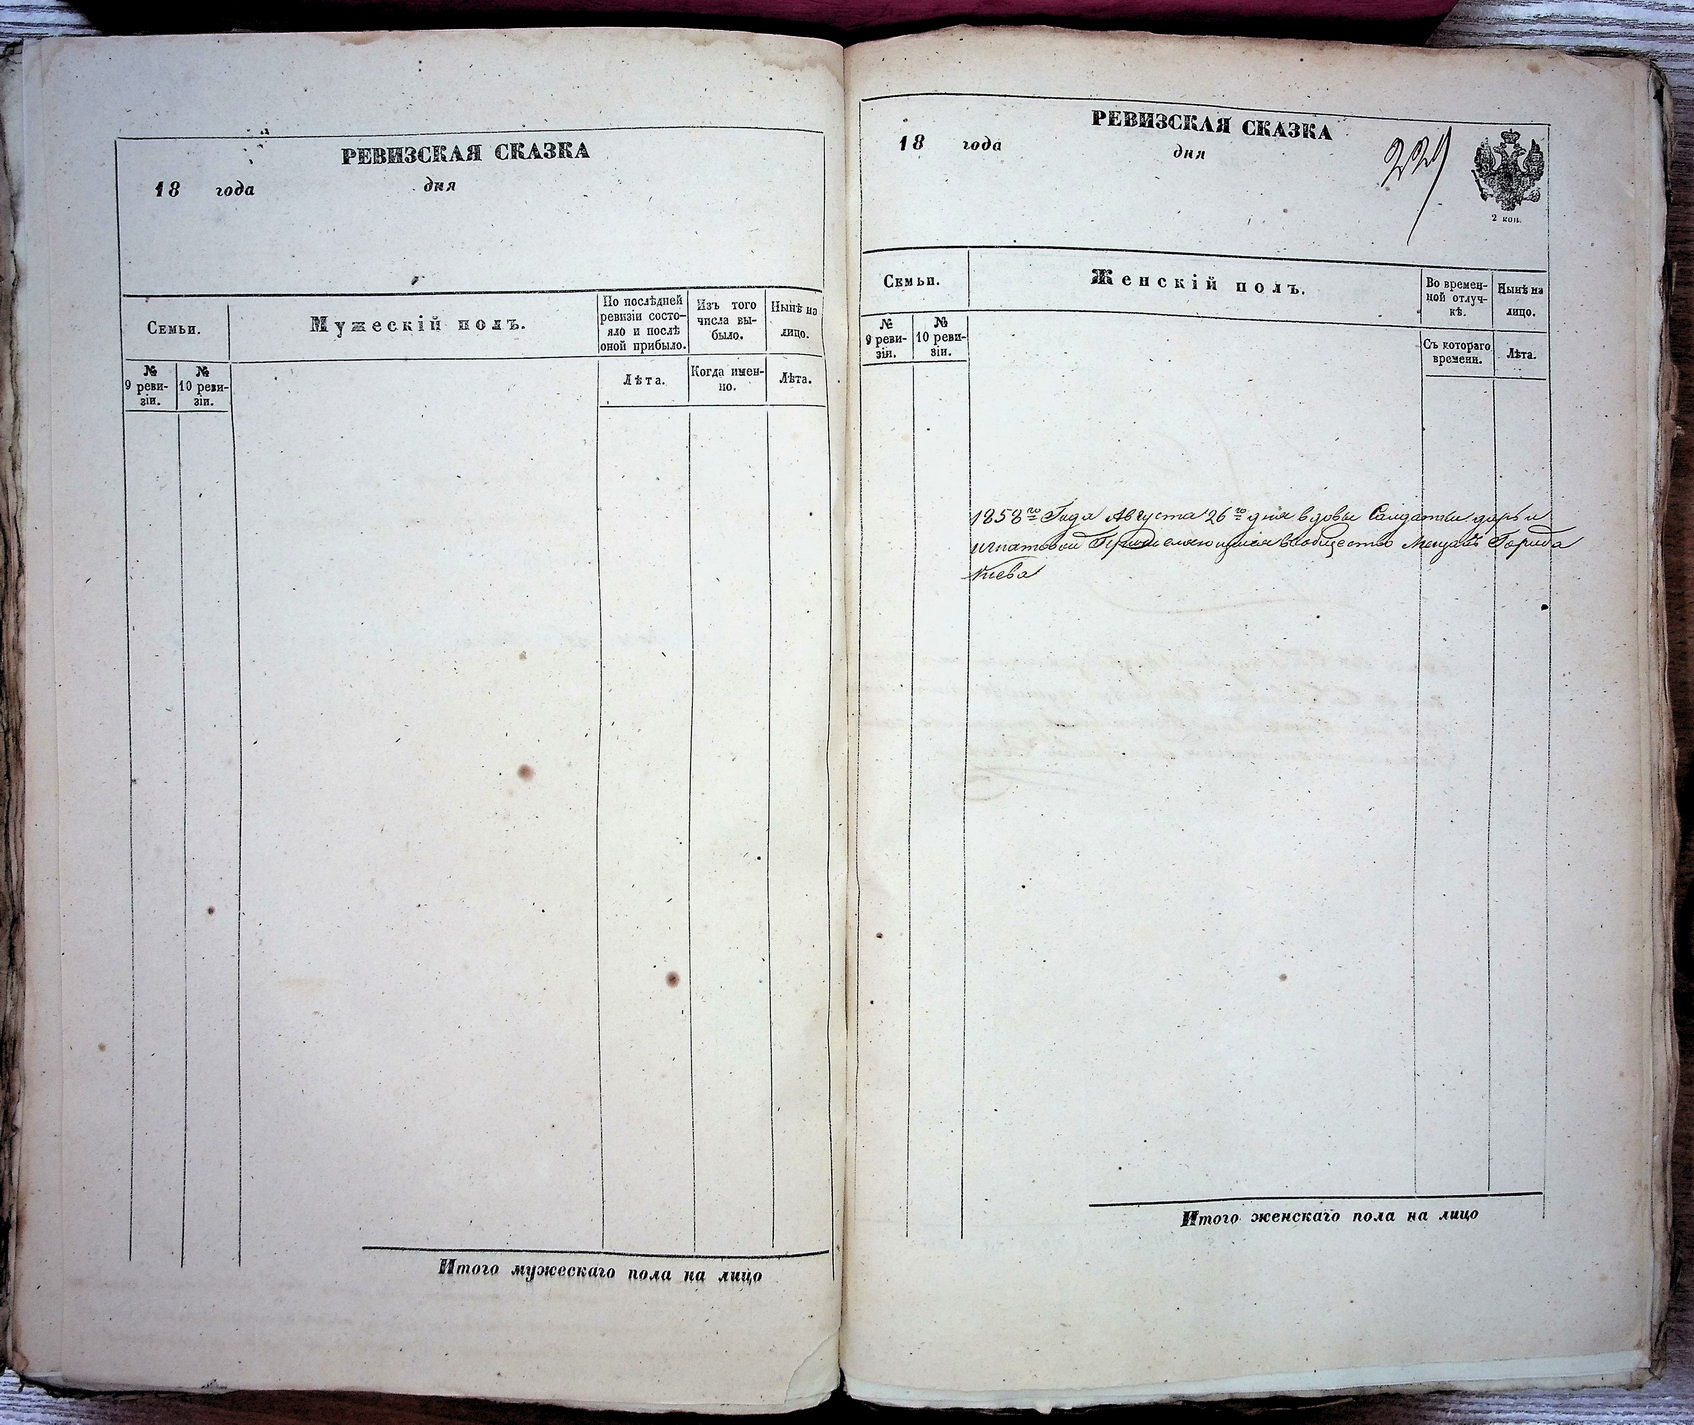 РЕВИЗСКАЯ СКАЗКА
18 года дня
Семьи.
Мужескій полъ.
По послѣдней
ревизіи состо-
яло и послѣ
оной прибыло.
Изъ того
числа вы-
было.
Нынѣ на
лицо.
№
9 реви-
зіи.
№
10 реви-
зіи.
Лѣта.
Когда имен-
но.
Лѣта.
Итого мужескаго пола на лицо
РЕВИЗСКАЯ СКАЗКА
18 года дня
229
2 коп.
Семьи.
Женскій полъ.
Во времен-
ной отлуч-
кѣ.
Нынѣ на
лицо.
№
9 реви-
зіи.
№
10 реви-
зіи.
Съ котораго
времени.
Лѣта.
1858го Года Августа 26го дня вдовы Салдатки дарьи
игнатовои Мещанъ Города
Киева
Итого женскаго пола на лицо